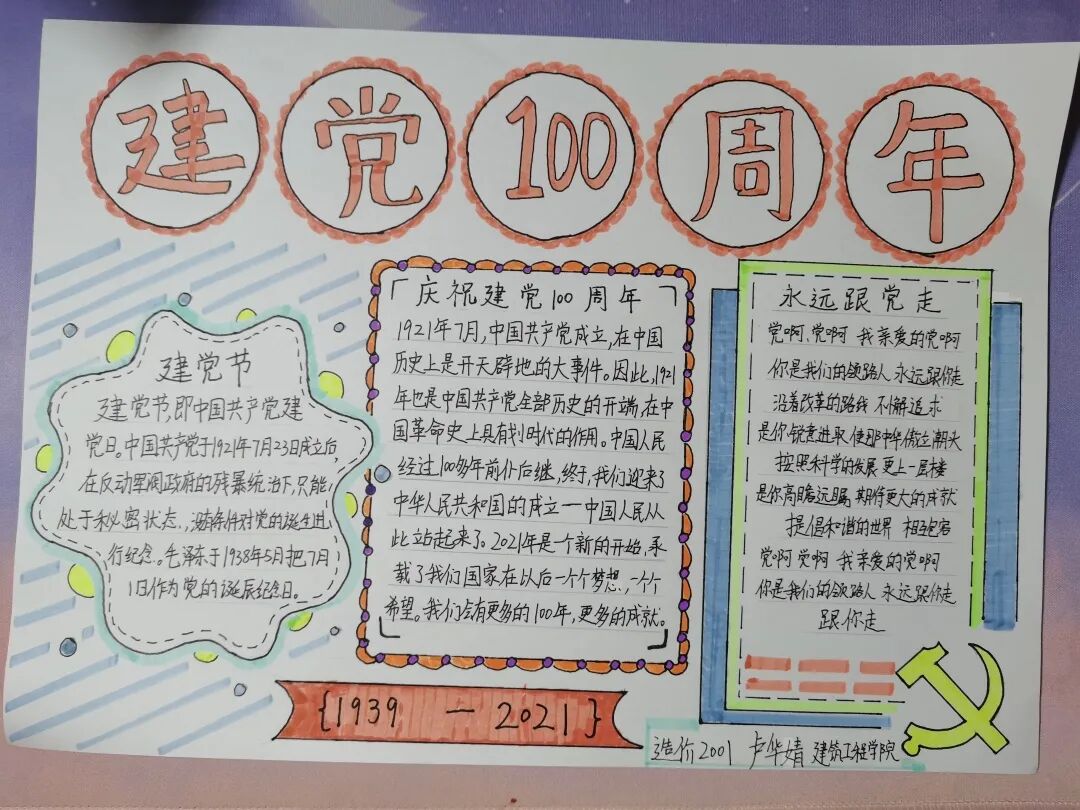 建党100周年
建党节
建党节,即中国共产党建
党日。中国共产党于1921年7月23日成立后,
在反动军阀政府的残暴统治下,只能
处于秘密状态,没有条件对党的诞生进
行纪念。毛泽东于1938年5月把7月
1日作为党的诞辰纪念日。
「庆祝建党100周年
1921年7月,中国共产党成立,在中国
历史上是开天辟地的大事件。因此,1921
年也是中国共产党全部历史的开端,在中
国革命史上具有划时代的作用。中国人民
经过100多年前仆后继,终于,我们迎来了
中华人民共和国的成立一中国人民从
此站起来了。2021年是一个新的开始,承
载了我们国家在以后一个个梦想,一个个
希望。我们会有更多的100年,更多的成就。
永远跟党走
党啊、党啊 我亲爱的党啊
你是我们的领路人 永远跟你走
沿着改革的路线 不懈追求
是你锐意进取 使那中华傲立潮头
按照科学的发展 更上一层楼
是你高瞻远瞩 期待更大的成就
提倡和谐的世界 相互包容
党啊 党啊 我亲爱的党啊
你是我们的领路人 永远跟你走
跟你走
{1939 一 2021}
造价2001 卢华婧 建筑工程学院